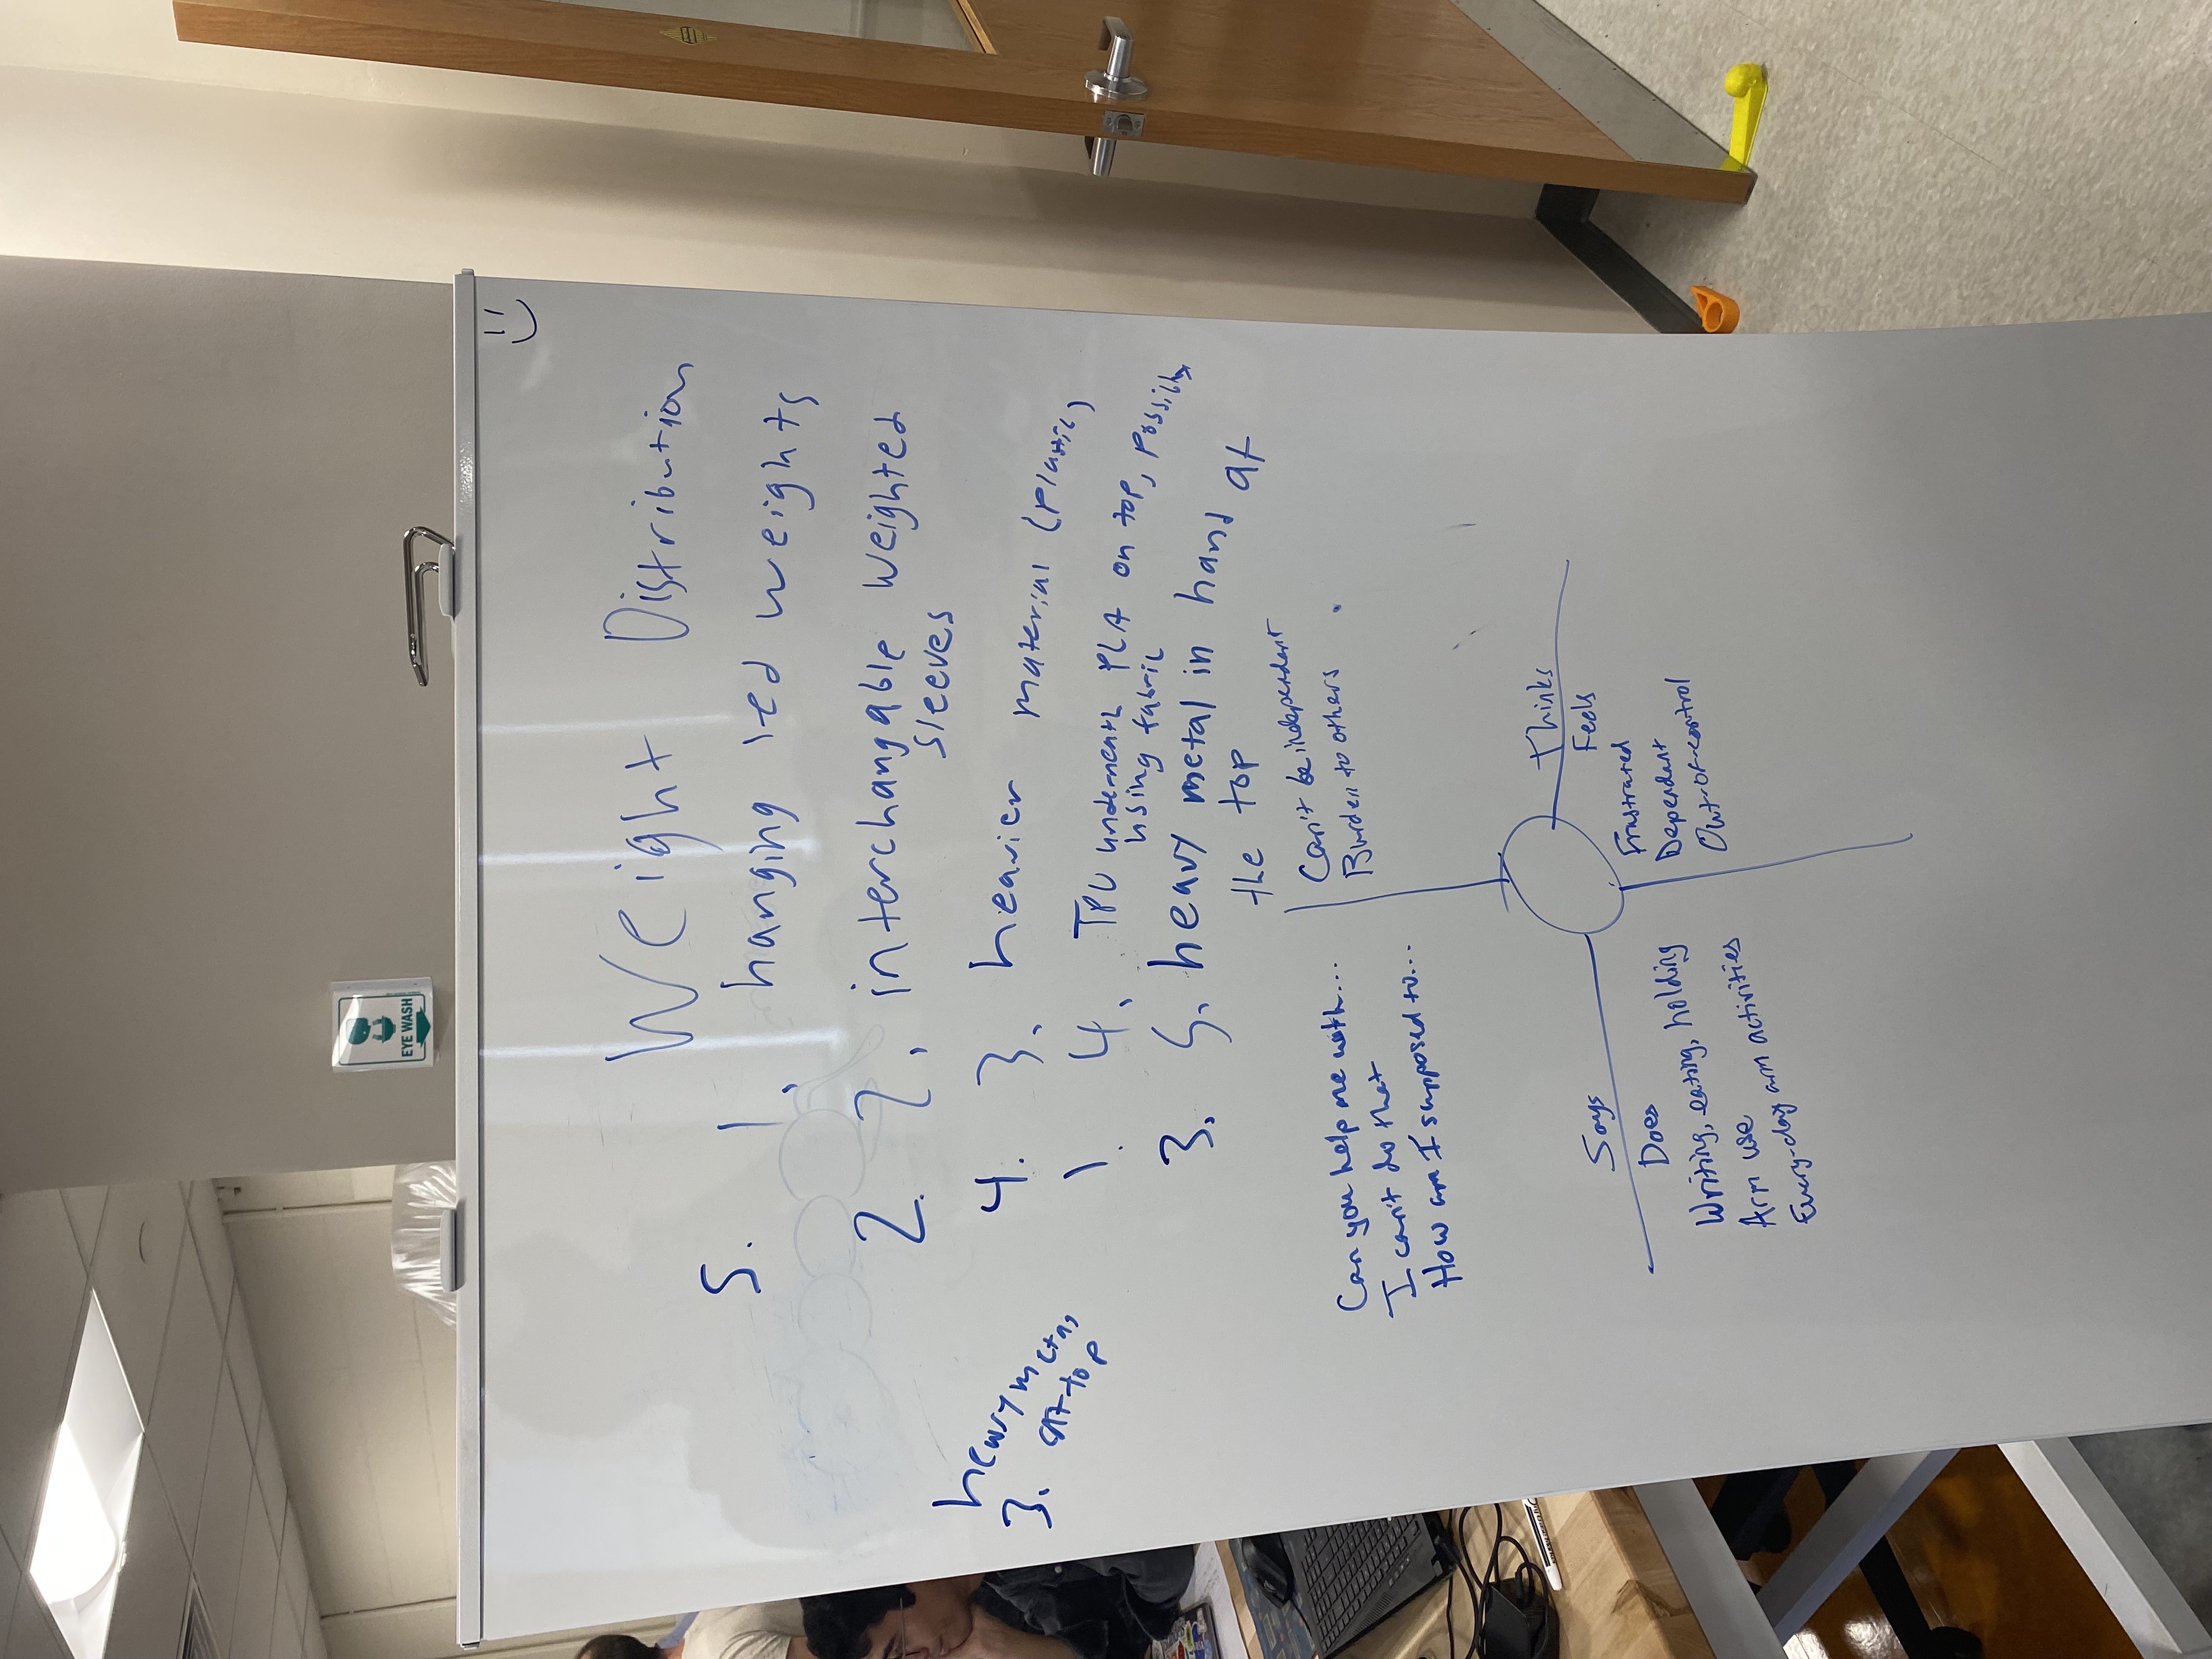 EYE WASH
Weight Distribution
5. 1, hanging led weights
2. 2, interchangable weighted
sleeves
4. 3, heavier material (plastic)
1. 4, TPU underneath PLA on top, possibly
using fabric
3. 5. heavy metal in hand at
the top
heavy metal
3. at top
Can you help me with...
I can't do that
How am I supposed to...
Can't be independant
Burden to others
Says
Thinks
Does
Feels
Writing, eating, holding
Arm use
Every-day arm activities
Frustrated
Dependant
Out-of-control